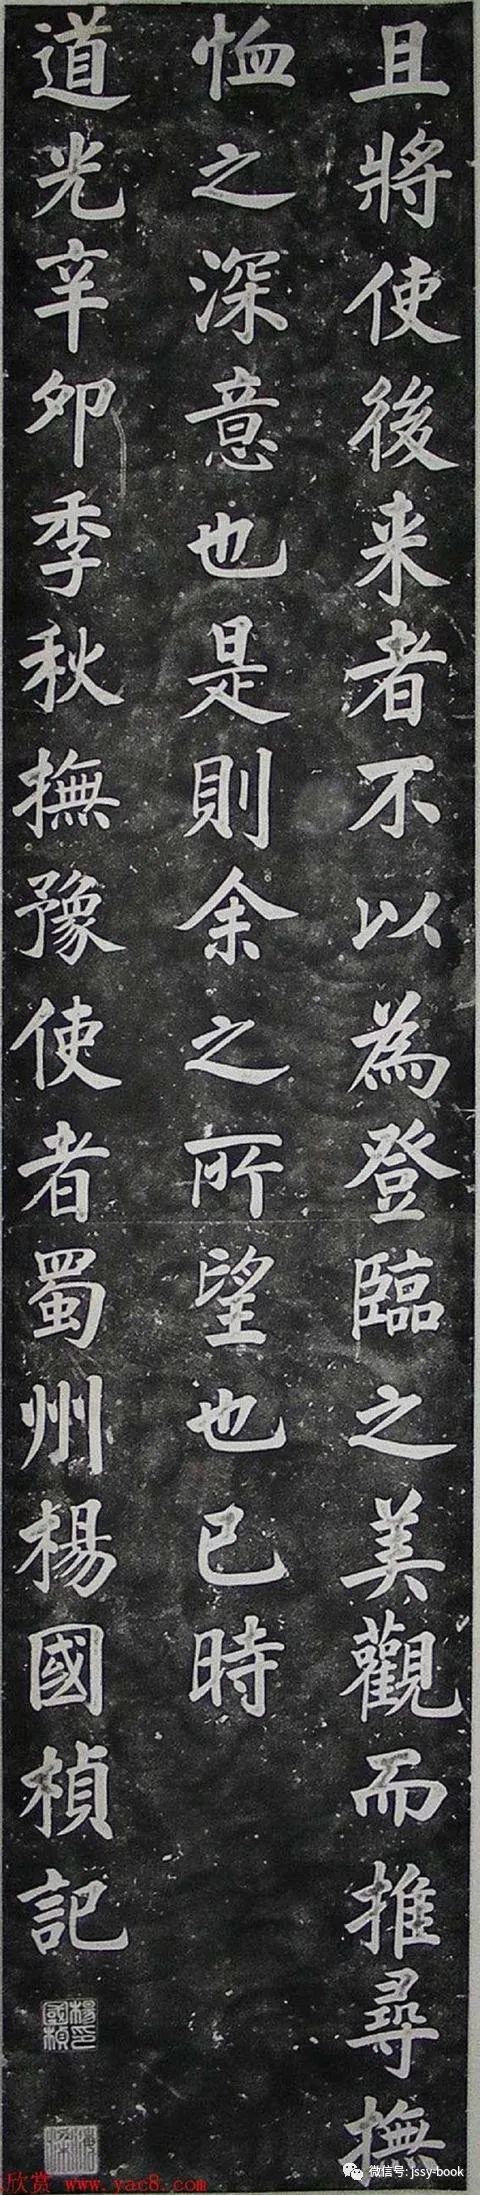 且將使後来者不以為登臨之美觀而推尋撫
恤之深意也是則余之所望也已時
道光辛卯季秋撫豫使者蜀州楊國楨記
楊印國楨
欣赏 www.yac8.com
微信号: jssy-book